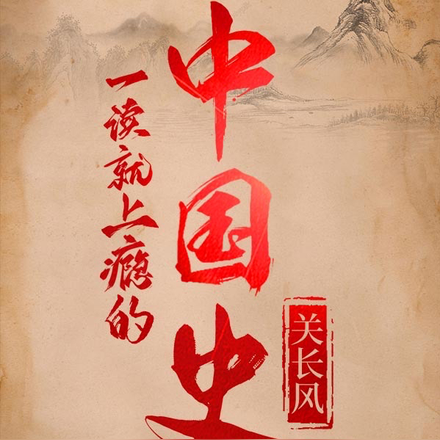 一读就上瘾的
中国史
关长风